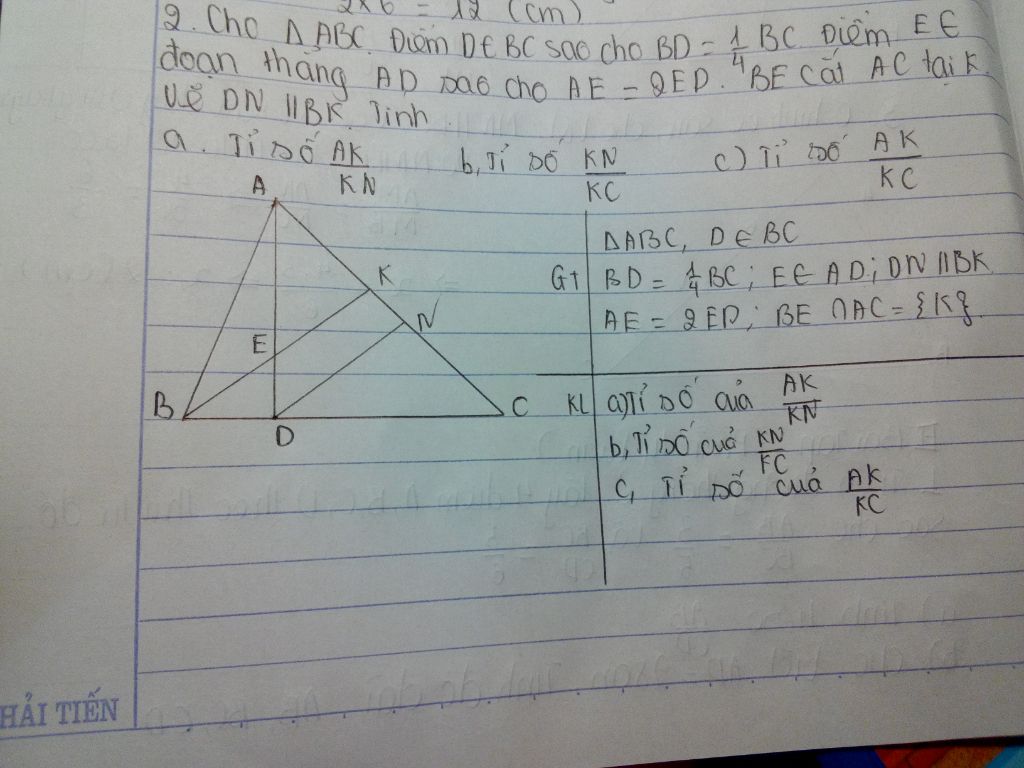 2x6 = 12 (cm)
2. Cho ΔABC. Điểm D∈BC sao cho BD = 1/4 BC Điểm E∈
đoạn thẳng AD sao cho AE = 2ED. BE cắt AC tại K.
Vẽ DN // BK. Tính
a. Tỉ số AK/KN b, Tỉ số KN/KC c) Tỉ số AK/KC
A
K
N
E
B
C
D
ΔABC, D ∈ BC
Gt BD = 1/4 BC; E∈ AD; DN // BK
AE = 2ED; BE ∩AC = {K}.
KL a) Tỉ số của AK/KN
b, Tỉ số của KN/FC
c, Tỉ số của AK/KC
HẢI TIẾN